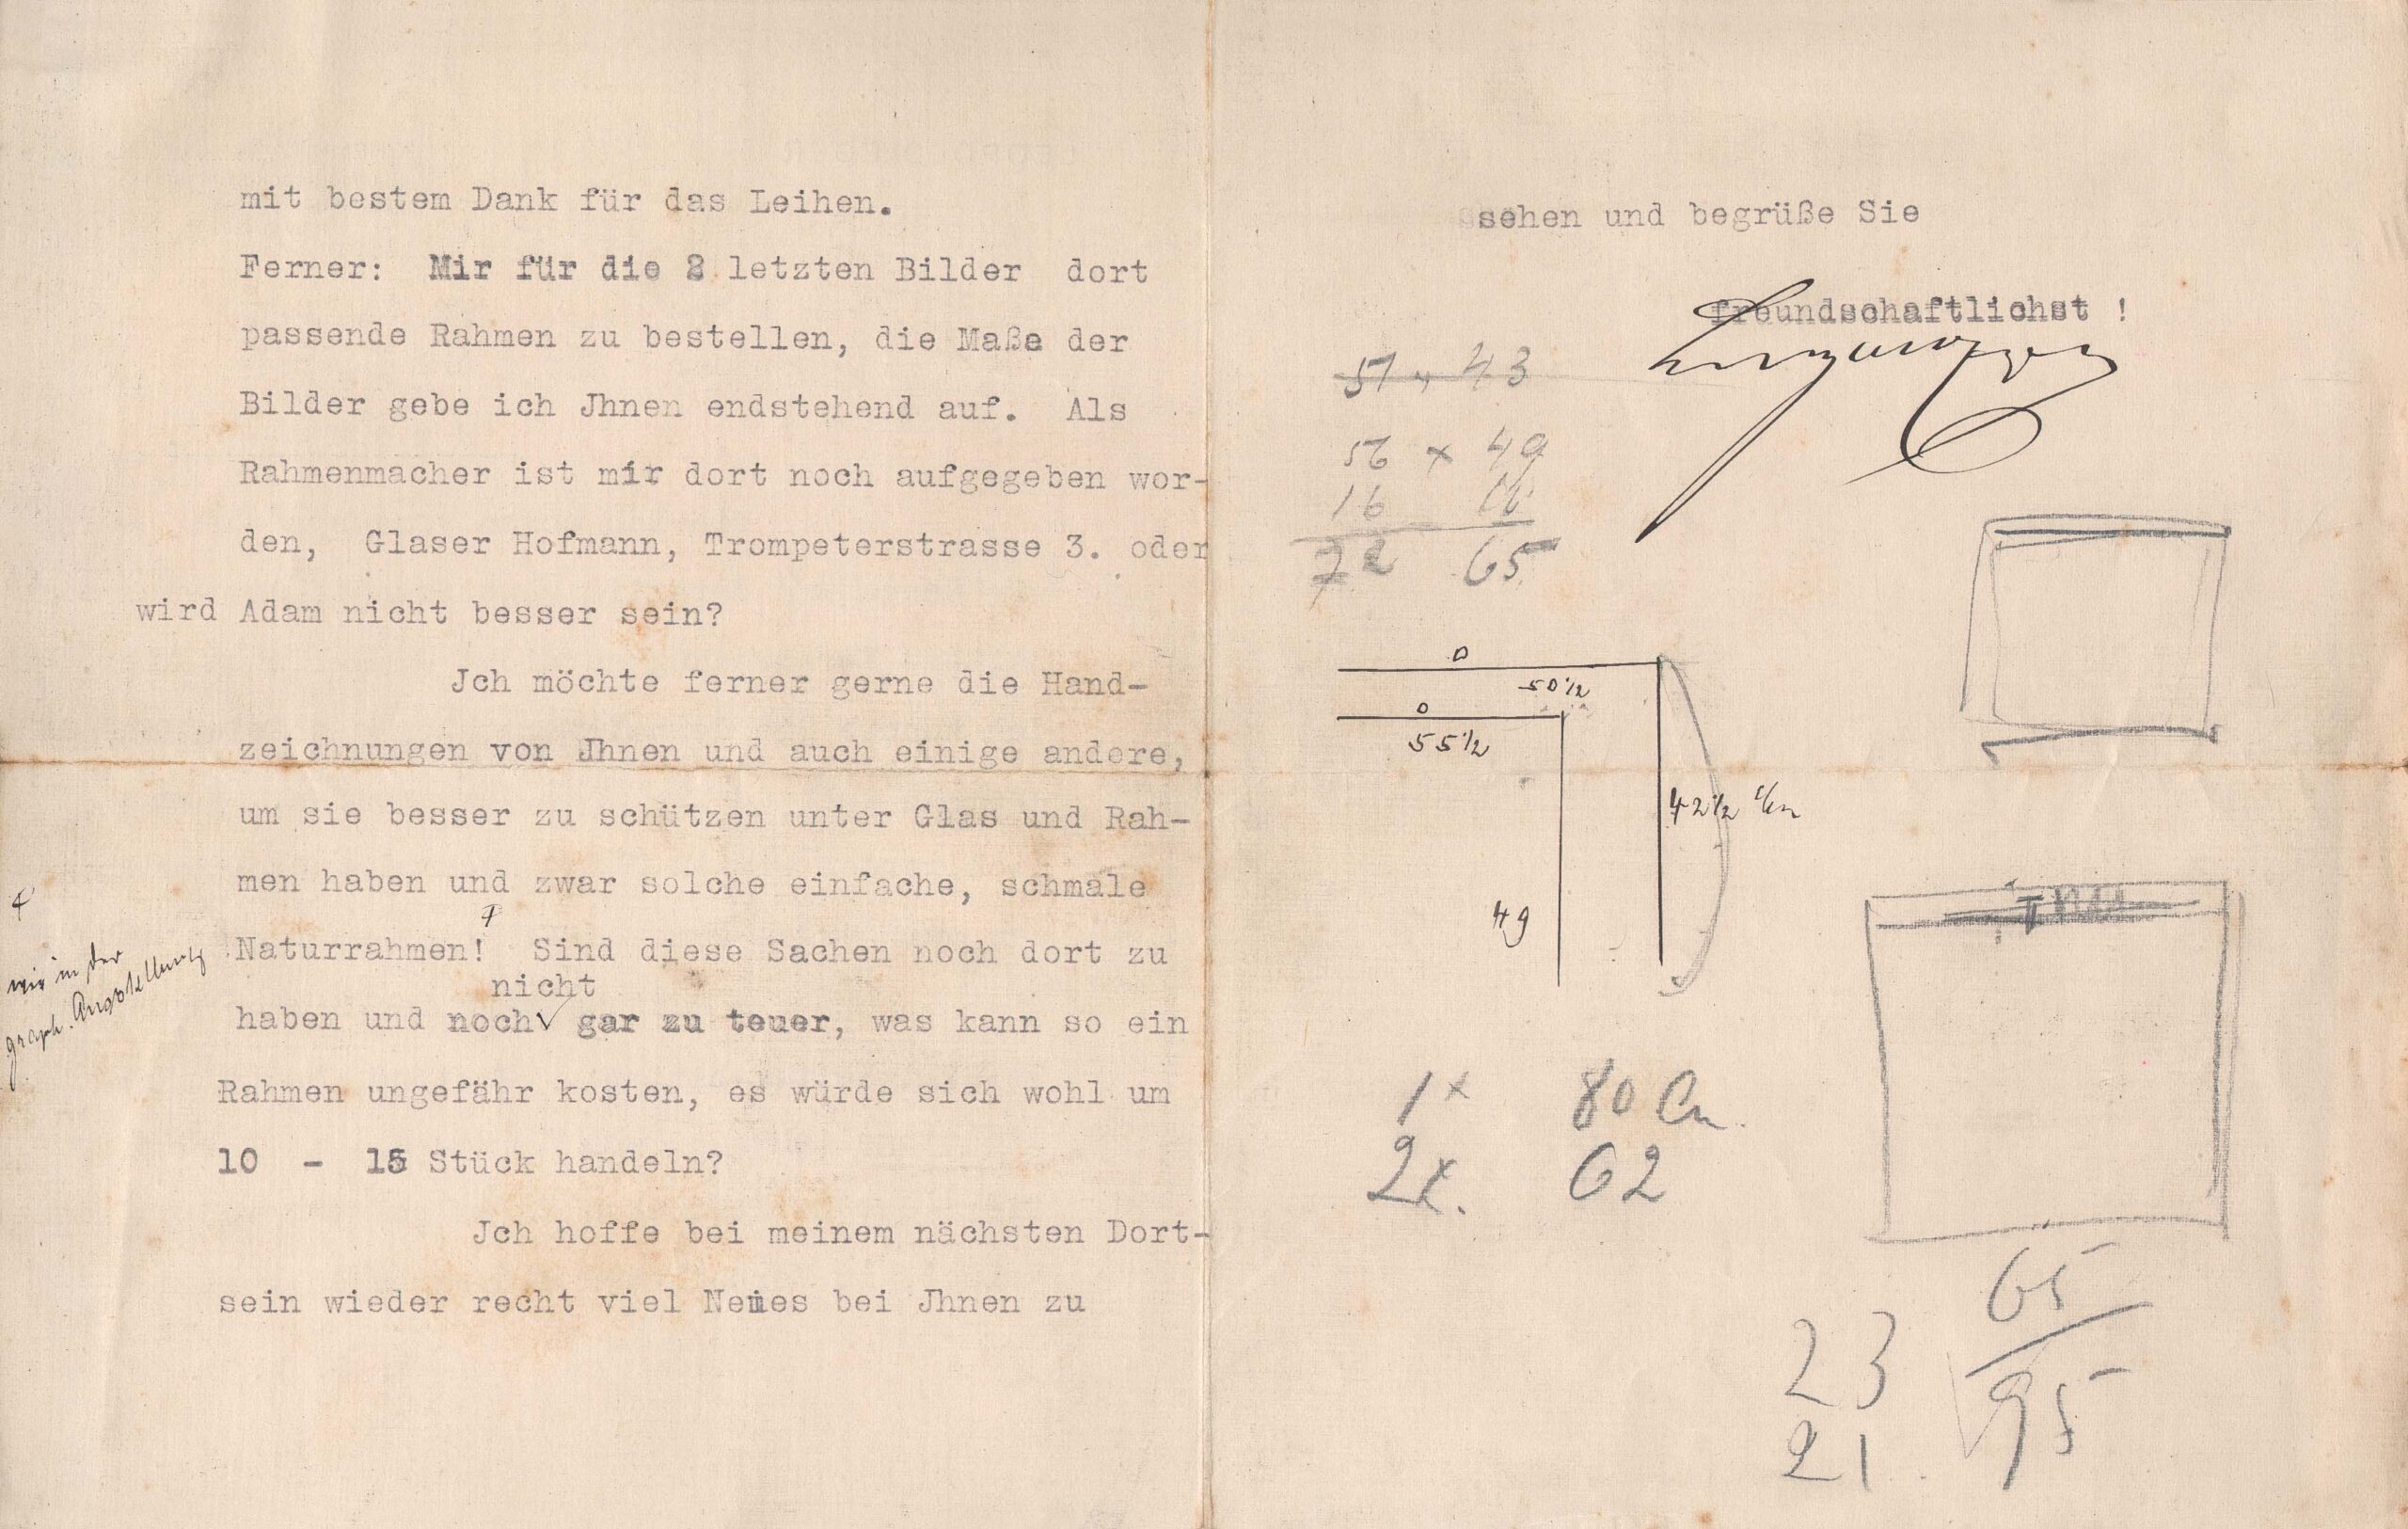 mit bestem Dank für das Leihen.
Ferner: Mir für die 2 letzten Bilder dort
passende Rahmen zu bestellen, die Maße der
Bilder gebe ich Jhnen endstehend auf. Als
Rahmenmacher ist mir dort noch aufgegeben wor-
den, Glaser Hofmann, Trompeterstrasse 3. oder
wird Adam nicht besser sein?
Jch möchte ferner gerne die Hand-
zeichnungen von Jhnen und auch einige andere,
um sie besser zu schützen unter Glas und Rah-
men haben und zwar solche einfache, schmale
Naturrahmen! Sind diese Sachen noch dort zu
nicht
haben und noch gar zu teuer, was kann so ein
Rahmen ungefähr kosten, es würde sich wohl um
10 - 15 Stück handeln?
Jch hoffe bei meinem nächsten Dort-
sein wieder recht viel Neues bei Jhnen zu
wie in der
graph. Ausstellung
sehen und begrüße Sie
freundschaftlichst !
51 x 43
56 x 49
16 16
72 65
50 1/2
55 1/2
42 1/2 c/m
49
1x 80 Cm.
2x. 62
65
95
23
21